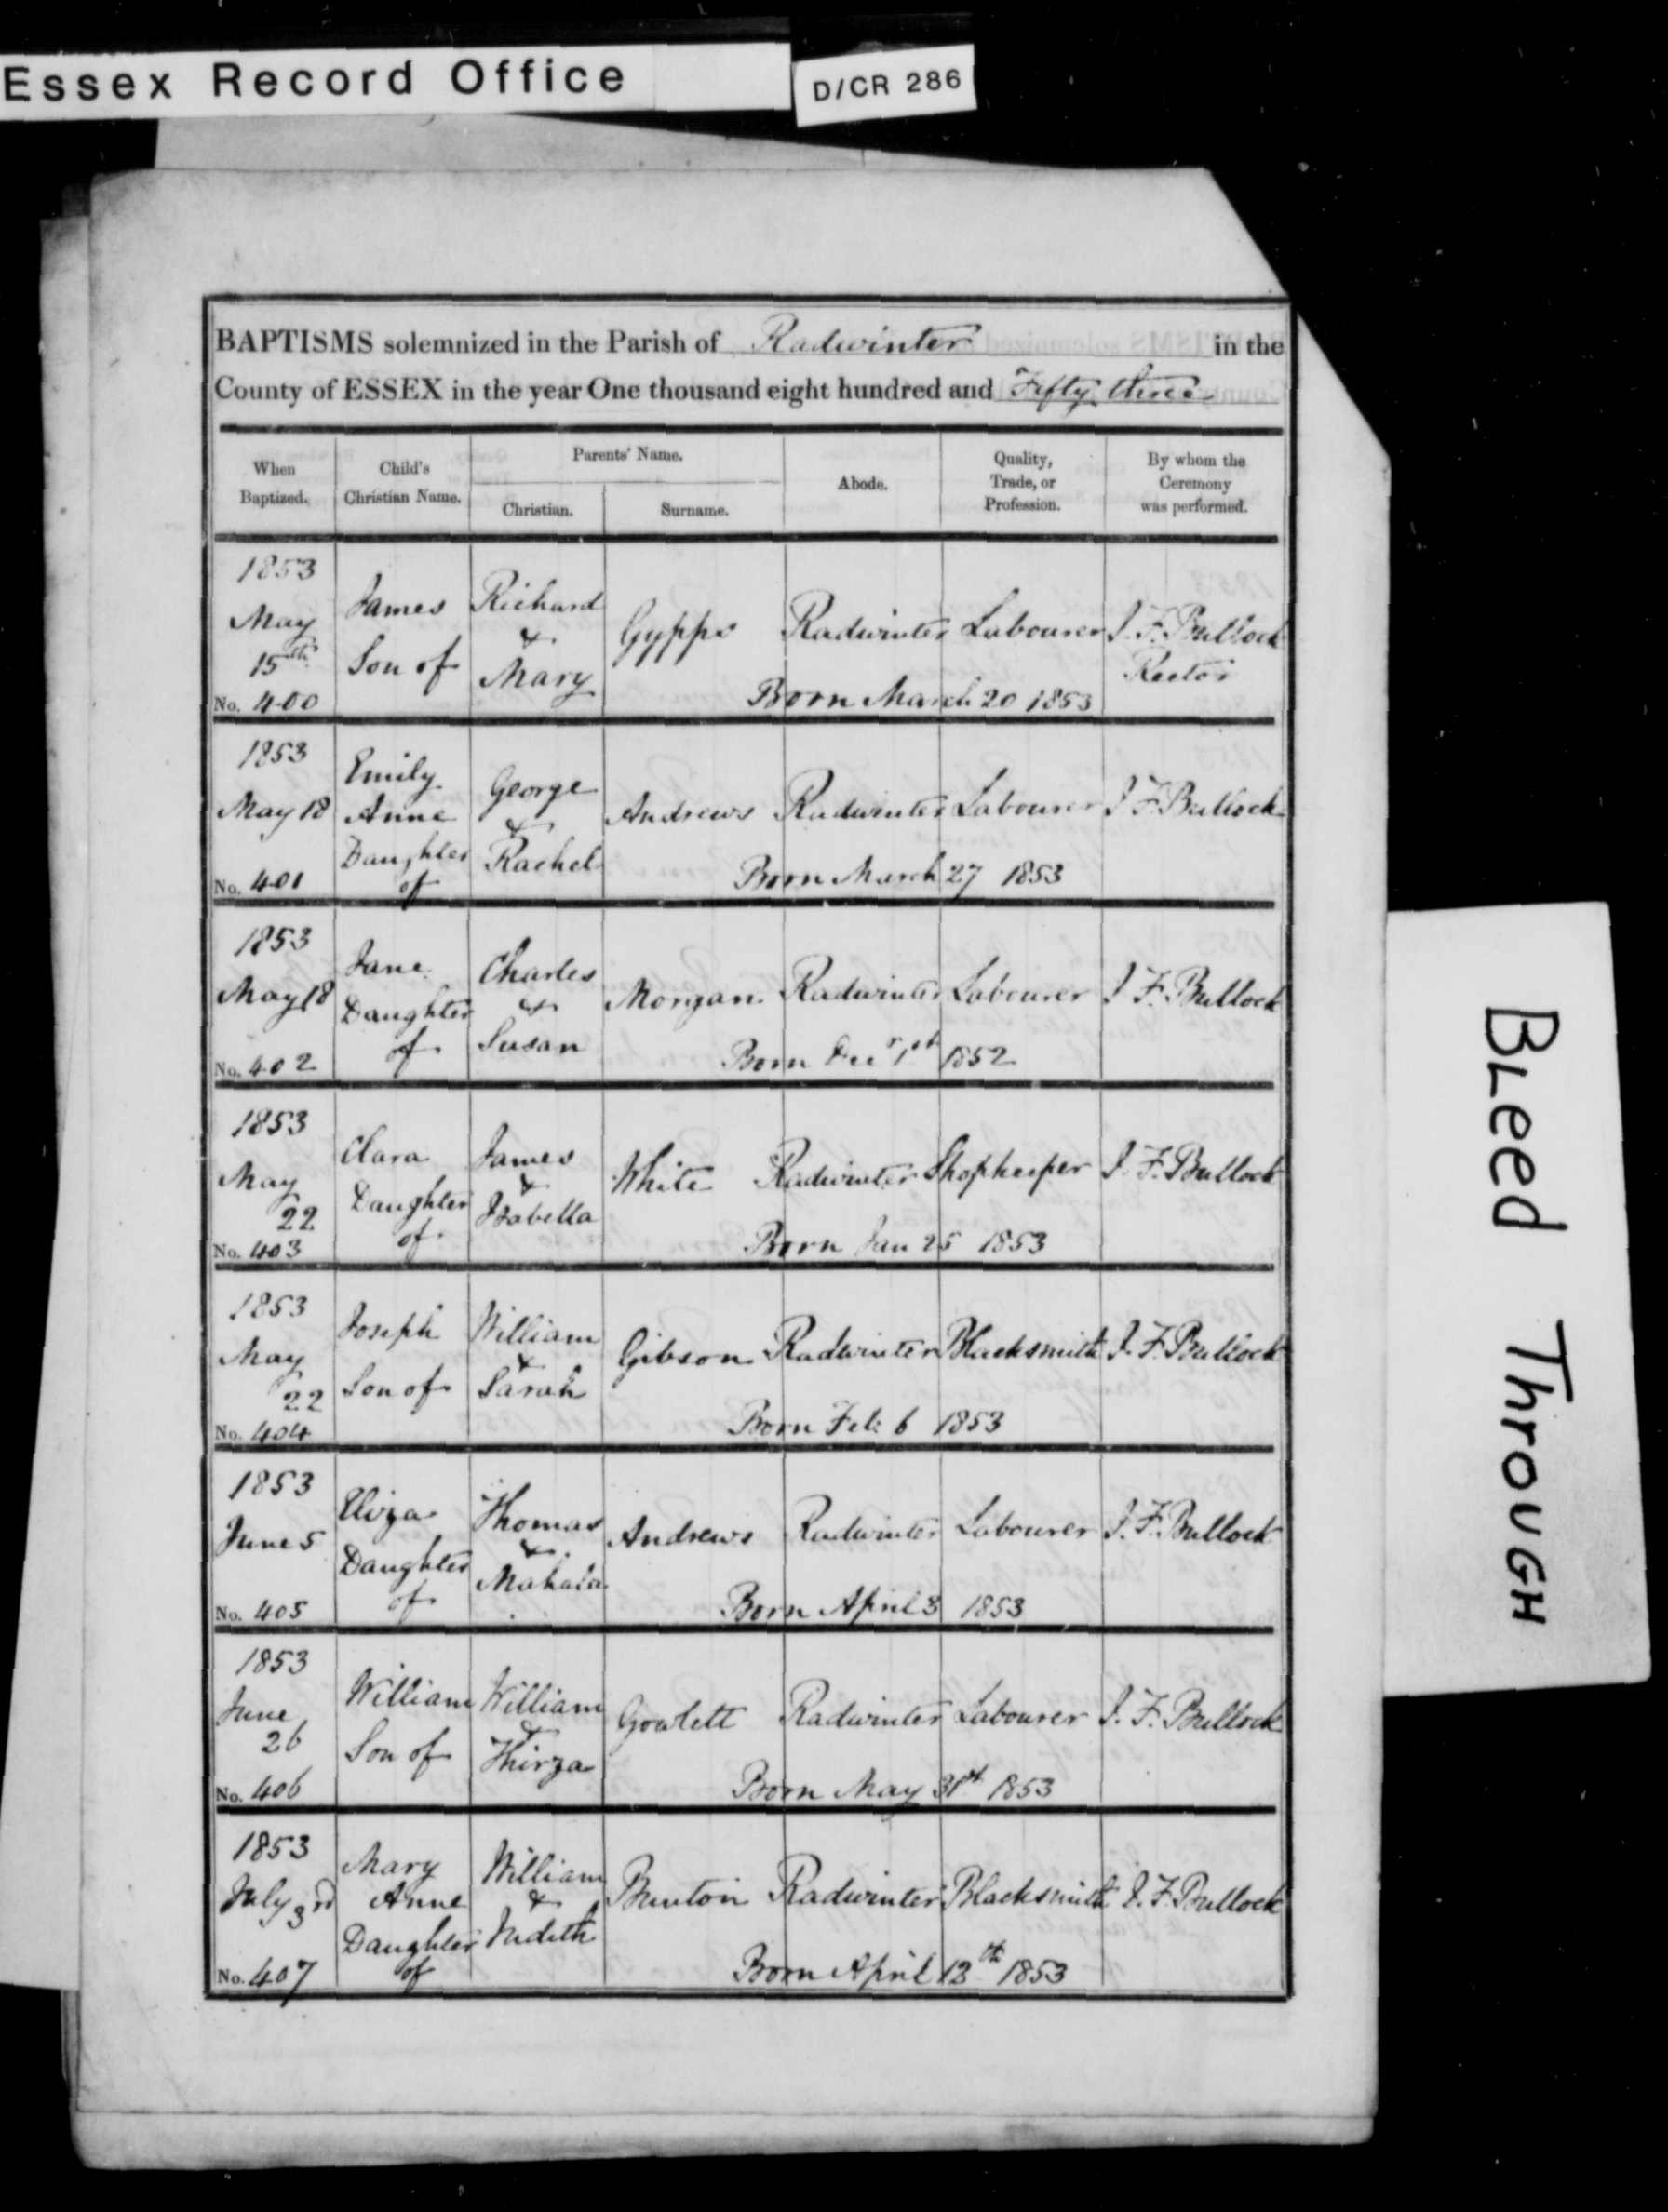 Essex Record Office
D/CR 286
BAPTISMS solemnized in the Parish of Radwinter in the
County of ESSEX in the year One thousand eight hundred and Fifty three
When Baptized. Child's Christian Name. Parents' Name. Christian. Surname. Abode. Quality, Trade, or Profession. By whom the Ceremony was performed.
1853
May 15th James Son of Richard & Mary Gypps Radwinter Labourer J. F. Bullock Rector
No. 400 Born March 20 1853
1853
May 18 Emily Anne Daughter of George & Rachel Andrews Radwinter Labourer J F Bullock
No. 401 Born March 27 1853
1853
May 18 Jane Daughter of Charles & Susan Morgan Radwinter Labourer J F. Bullock
No. 402 Born Decr 1st 1852
1853
May 22 Clara Daughter of James & Isabella White Radwinter Shopkeeper J. F. Bullock
No. 403 Born Jan 25 1853
1853
May 22 Joseph Son of William & Sarah Gibson Radwinter Blacksmith J. F. Bullock
No. 404 Born Feb: 6 1853
1853
June 5 Eliza Daughter of Thomas & Mahala Andrews Radwinter Labourer J. F. Bullock
No. 405 Born April 3 1853
1853
June 26 William Son of William & Thirza Gowlett Radwinter Labourer J. F. Bullock
No. 406 Born May 31st 1853
1853
July 3rd Mary Anne Daughter of William & Judith Bunton Radwinter Blacksmith J. F. Bullock
No. 407 Born April 12th 1853
BLeed ThrouGH